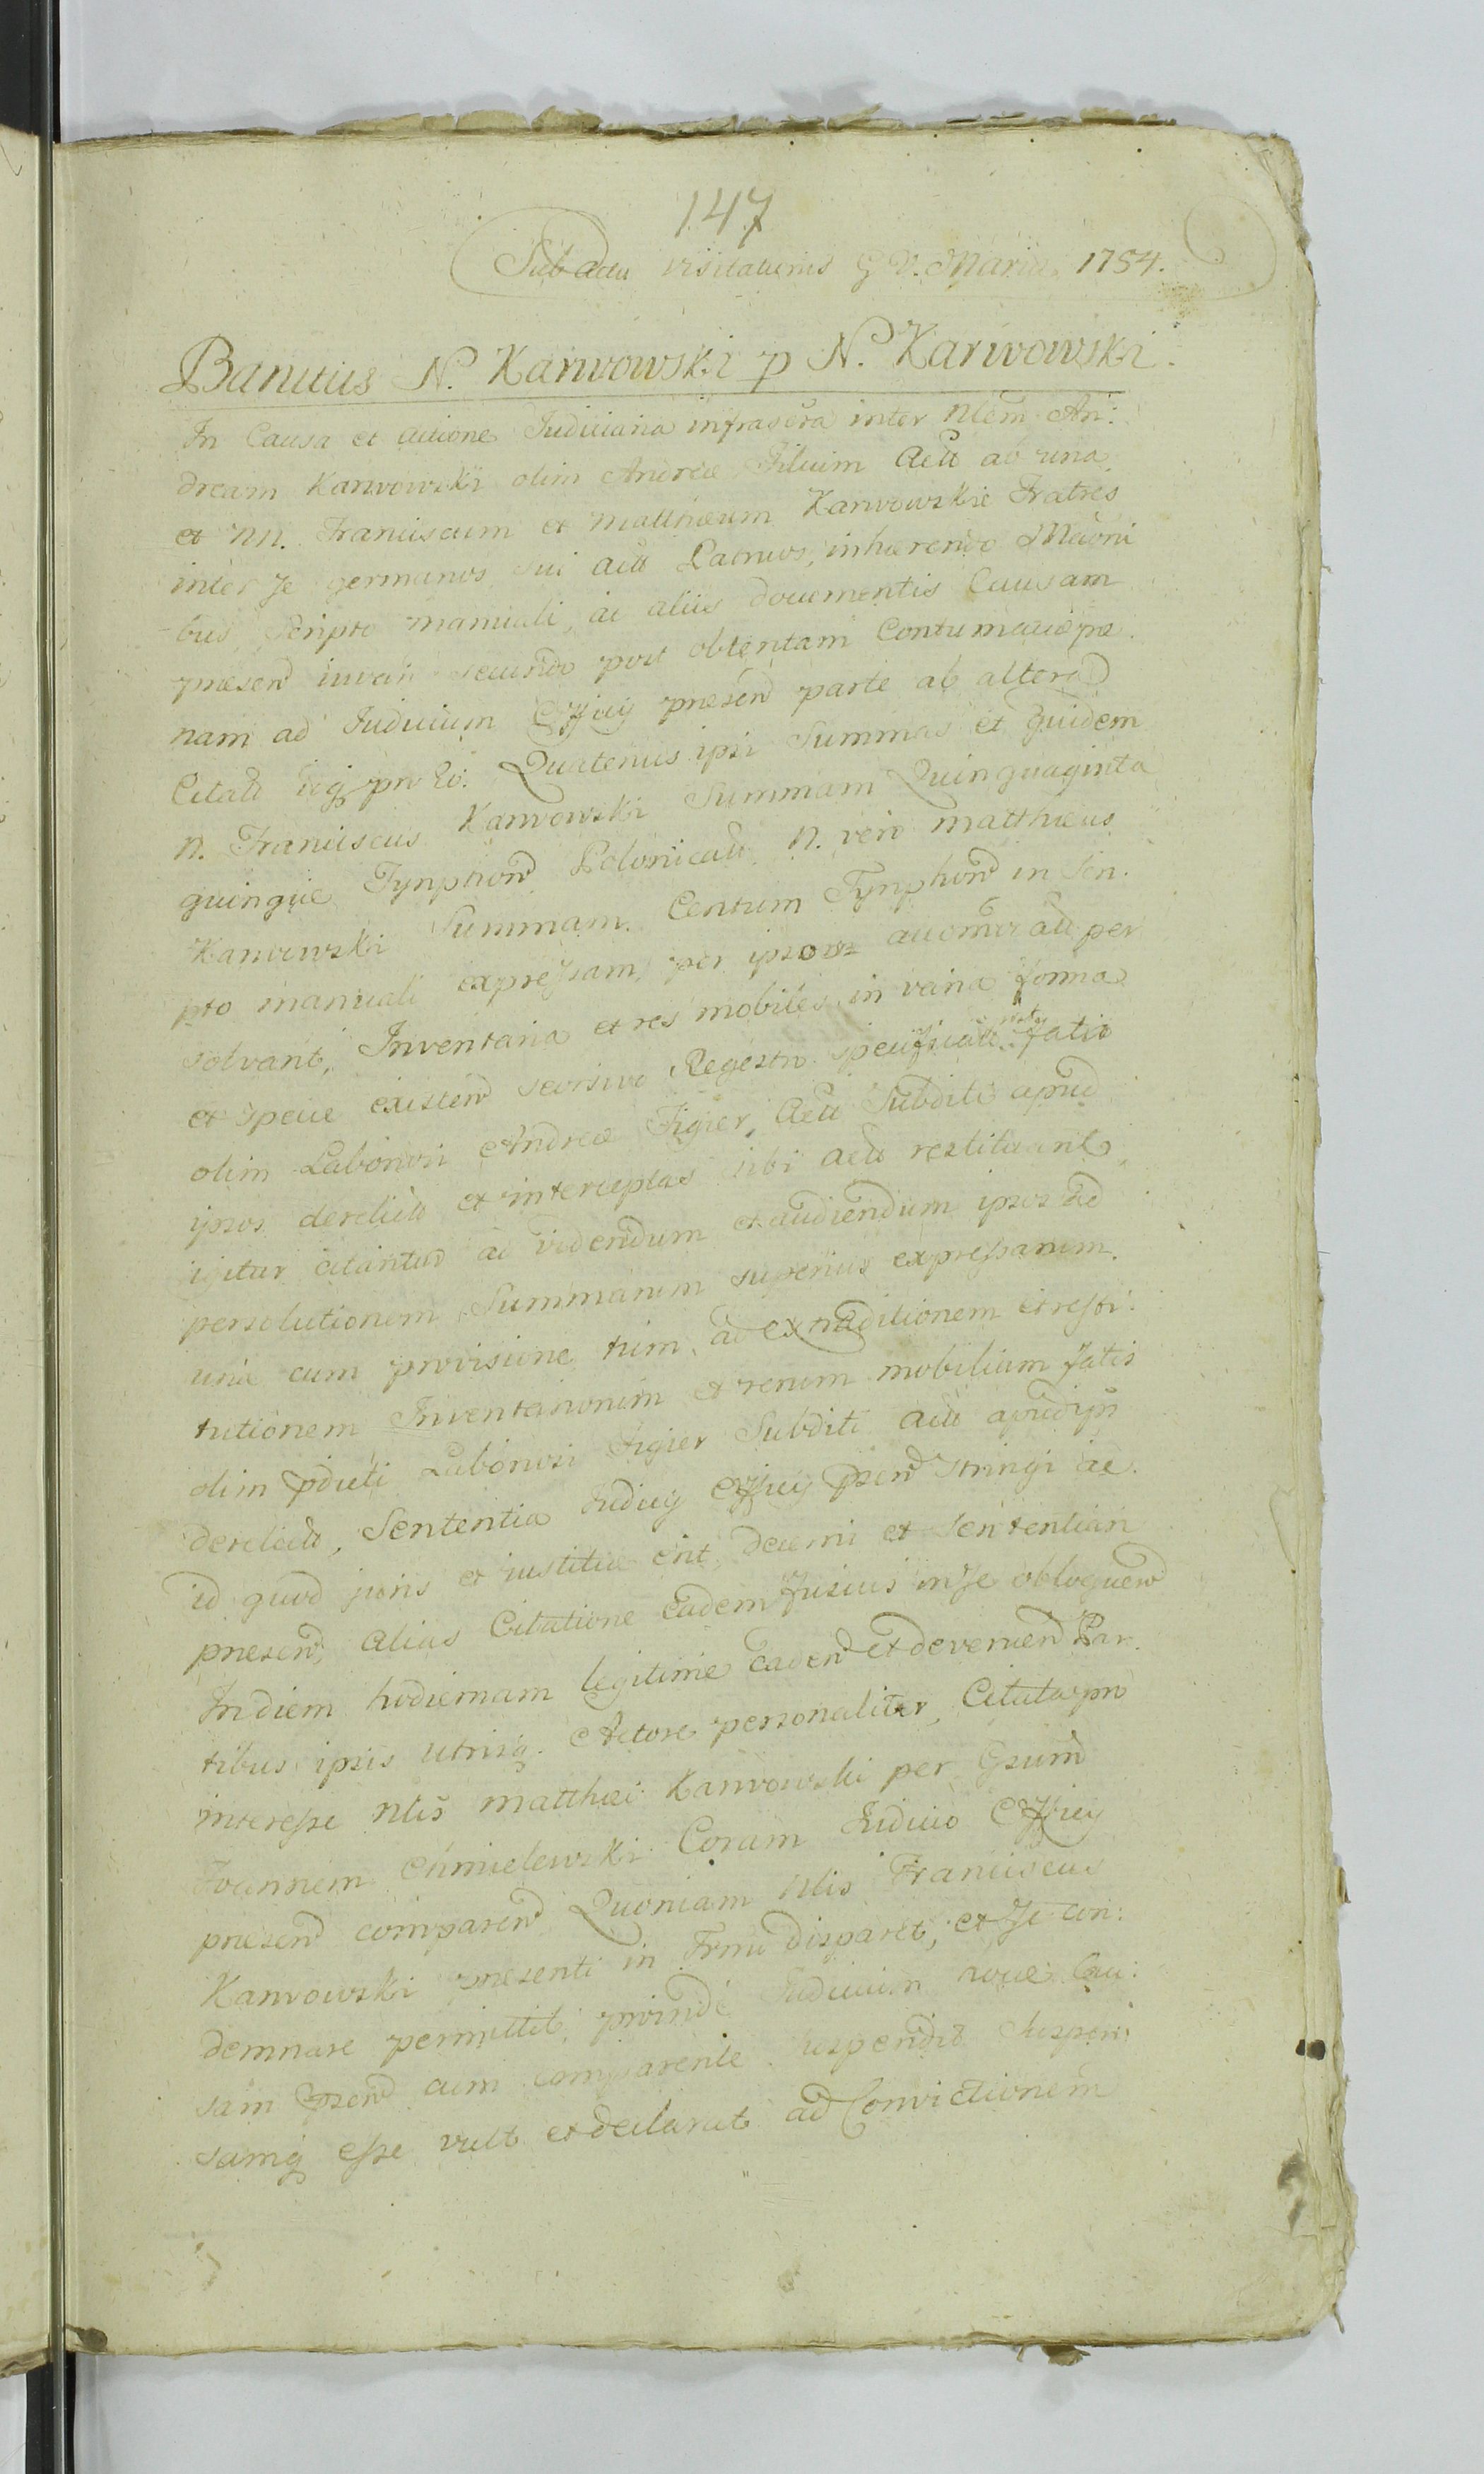 147
Sub Actu visitationis G V. Mariæ 1754.
Banitus N. Karwowski p N. Karwowski.
In Causa et actione Judiciaria infrascra inter Nlem An:
dream Karwowski olim Andreæ Filium Acto ab una
et NN. Franciscum et Matthæum Karwowskie Fratres
inter se germanos sui acto Patruos, inhærendo
bus Scripto manuali, ac aliis documentis Causam
præsen secundo post obtentam Contumaciæ pæ
nam ad Judicium præsen parte ab altera
Citato Quatenus ipsi Summas et quidem
N. Franciscus Karwowski Summam Quinquaginta
quinque Tynphon Polonical N. vero Matthæus
Karwowski Summam Centum Tynphon in Scri
pto manuali expressam, per ipsos per
solvant, Inventaria et res mobiles in varia forma
et specie existen seorsivo Regestro specificat fatis
olim Laboriosi Andreæ Figier, Acto Subditi apud
ipsos derelicto et interceptas sibi acto restituant,
igitur citantur ad videndum et audiendum ipsos ad
persolutionem Summarum superius expressarum
una cum provisione tum ad extraditionem et resti:
tutionem Inventariorum et rerum mobilium fatis
olim pdicti Laboriosi Figier Subditi acto apud ips
derelicto, Sententia Judicij Officij psen stringi ac
id quod juris et iustitiæ erit, decerni et sententiari
præsen, alias Citatione eadem fusius in se obloquen
In diem hodiernam legitime caden et devenien Par
tibus ipsis utrisq. Actore personaliter, Citato pro
interesse Nlis Matthæi Karwowski per Gsum
Joannem Chmielewski Coram Judicio Officij
præsen comparen Quoniam Nlis Franciscus
Karwowski præsenti in Trno disparet, et se con:
demnare permittit, proinde Judicium Cau:
sam psen cum comparente suspendit suspen:
samq esse vult et declarat ad Convictionem